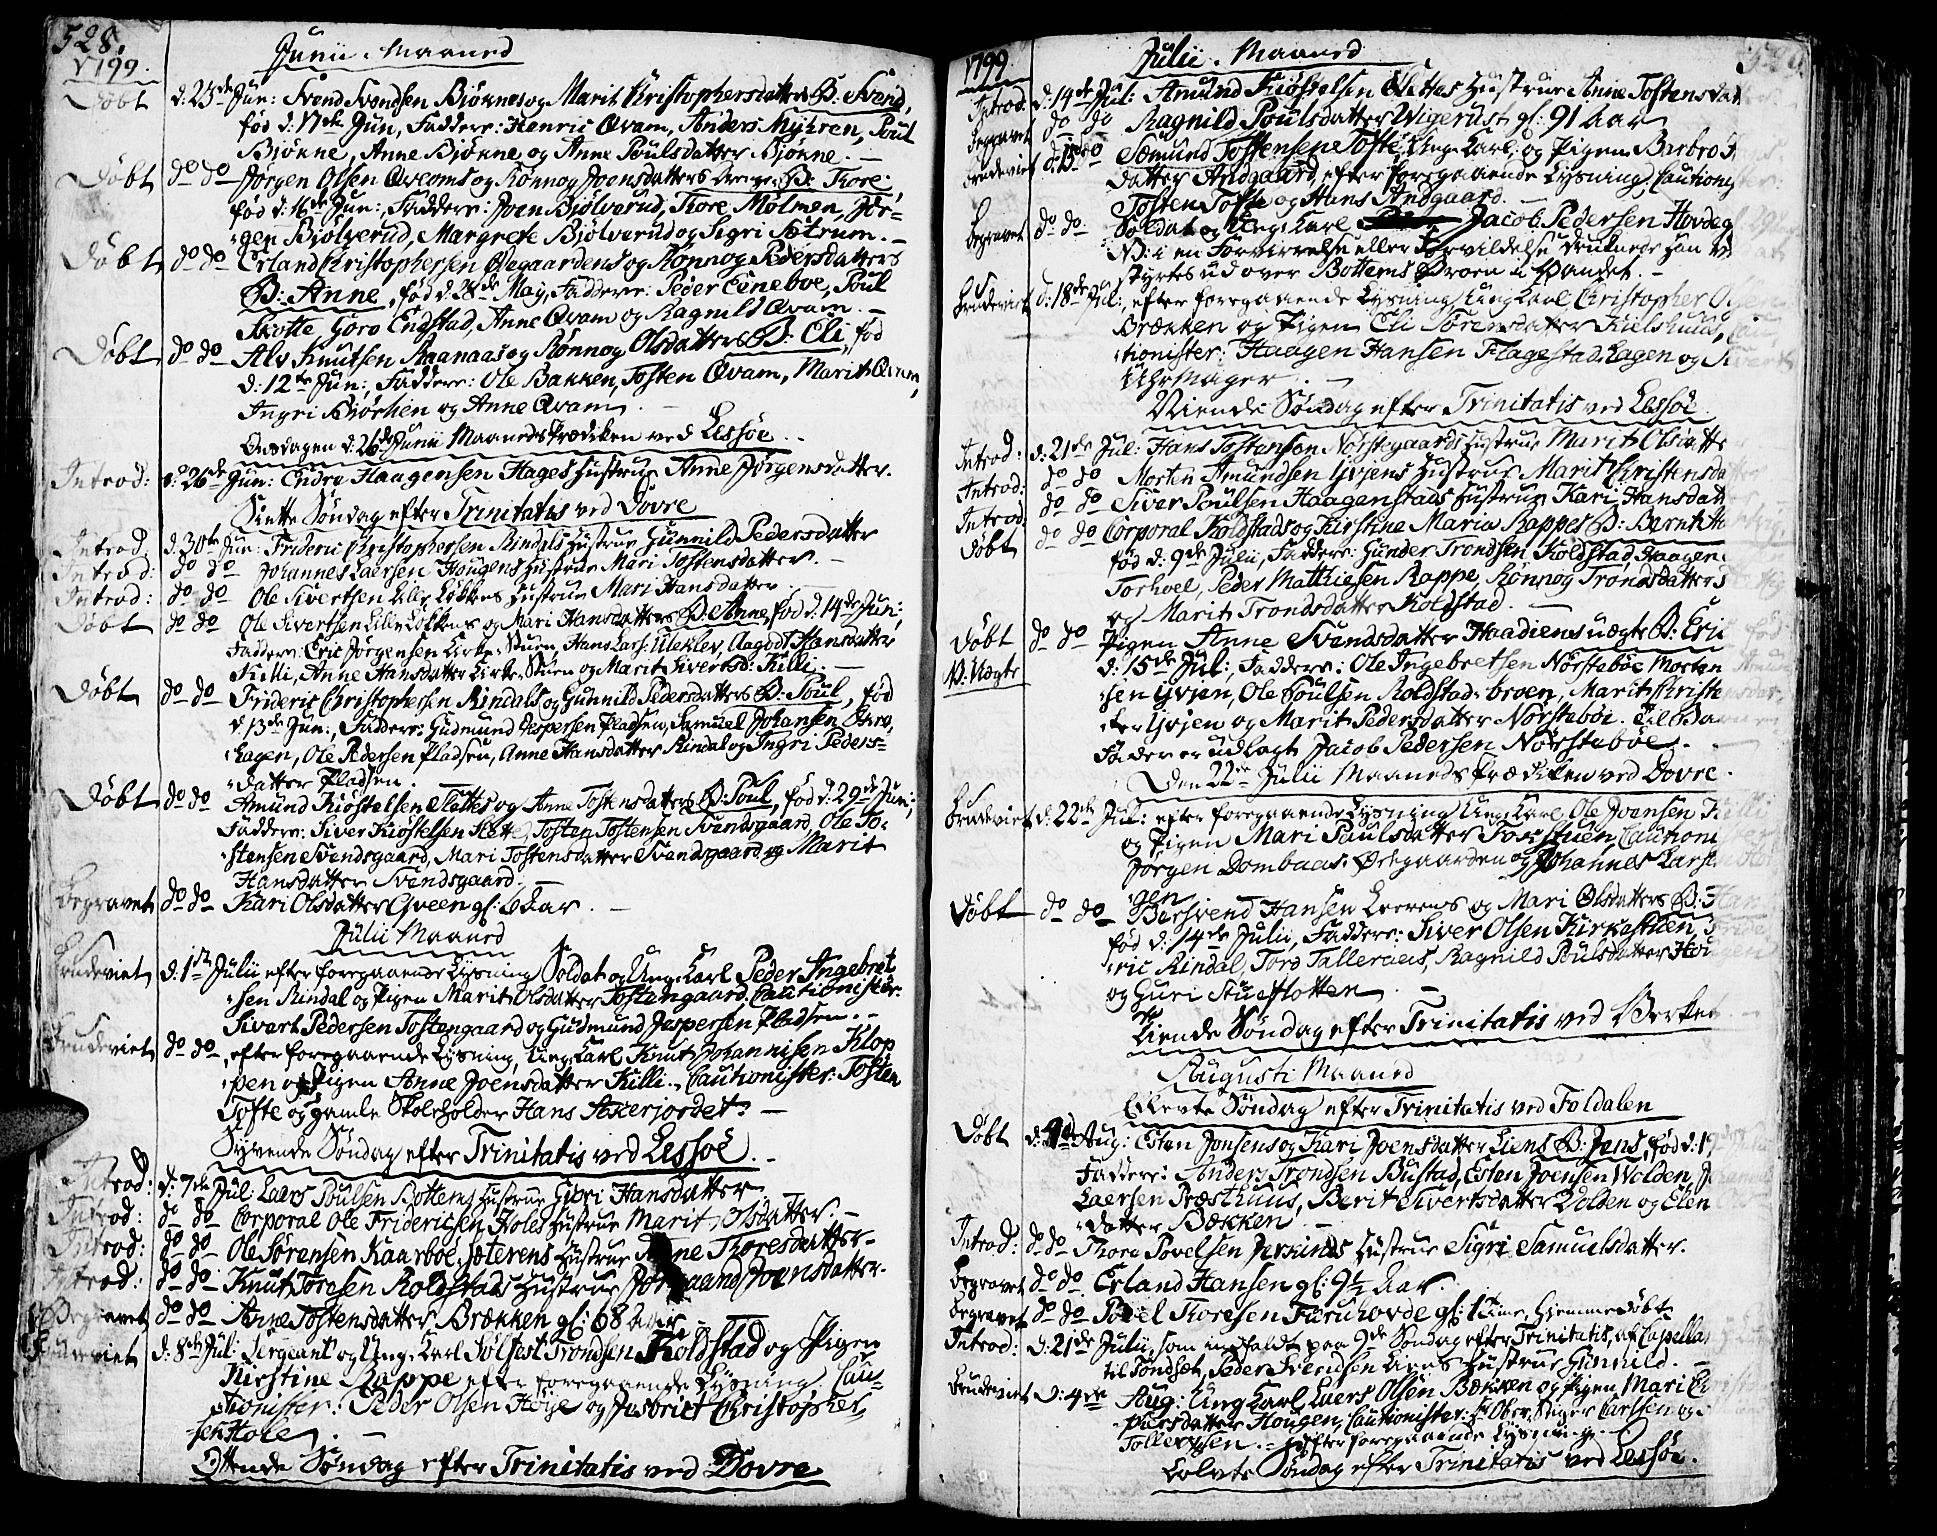 528.
1799.
Junii Maaned
Døbt d: 23de Jun: Svend Svendsen Bjøknes og Marit Christophersdatters B: Svend,
fød d: 17de Jun, Faddere: Henric Qvam, Anders Myhren, Poul
Bjøkne, Anne Bjøkne og Anne Poulsdatter Bjøkne. —
Døbt do do Jørgen Olsen Qvoms og Rønnog Joensdatters B: Thore,
fød d: 16de Jun:, Faddere: Joen Bjølverud, Thore Mølmen, Jør-
gen Bjølverud, Margrete Bjølverud og Sigri Sætrum. —
Døbt do do Erland Christophersen Ødegaardens og Rønnog Pedersdatters
B: Anne, fød d: 28de May, Faddere: Peder Eneboe, Poul
Skotte, Goro Engstad, Anne Qvam og Ragnild Qvam. —
Døbt do do Alv Knutsen Raanaas og Rønnog Olsdatters B: Eli, fød
d: 12te Jun:, Faddere: Ole Bakken, Tosten Qvam, Marit Qvam,
Ingri Bjørlien og Anne Qvam. —
Onsdagen d: 26de Junii Maanedsprædiken ved Lessøe.
Introd: d: 26de Jun: Endre Haagensen Hages Hustrue Anne Jørgensdatter.
Siette Søndag efter Trinitatis ved Dovre
Introd: d: 30te Jun: Frideric Christophersen Rindals Hustrue Gunnild Pedersdatter
Introd: do do Johannes Laersen Hougens Hustrue Mari Tostensdatter. —
Introd: do do Ole Sivertsen Lille Løkkens Hustrue Mari Hansdatter. —
Døbt do do Ole Sivertsen Lille Løkkens og Mari Hansdatters B: Anne, fød d: 14de Jun:,
Faddere: Eric Jørgensen Kirke-Stuen, Hans Lars: Ulekleiv, Aagodt Hansdatter
Killi, Anne Hansdatter Kirke-Stuen og Marit Sivertsd: Killi. —
Døbt do do Frideric Christophersen Rindals og Gunnild Pedersdatters B: Poul, fød
d: 13de Jun:, Faddere: Gudmund Jespersen Pladsen, Samuel Johansen
hagen, Ole Pedersen Pladsen, Anne Hansdatter Rindal og Ingri Peders-
datter Pladsen
Døbt do do Amund Kiøstelsen Slettes og Anne Tostensdatters B: Poul, fød d: 29de Jun:,
Faddere: Siver Kiøstelsen Slette, Tosten Tostensen Svendsgaard, Ole To-
stensen Svendsgaard, Mari Tostensdatter Svendsgaard og Marit
Hansdatter Svendsgaard. —
Begravet do do Kari Olsdatter Qveen gl: 6 Aar. —
Julii Maaned
Brudeviet d: 1ste Julii efter foregaaende Lysning Soldat og Ung-Karl Peder Ingebret
sen Rindal og Pigen Marit Olsdatter Tostengaard. Cautionister:
Sivert Pedersen Tostengaard og Gudmund Jespersen Pladsen. —
Brudeviet do do, efter foregaaende Lysning, Ung-Karl Knut Johannisen Klop
pen og Pigen Anne Joensdatter Killi, Cautionister: Tosten
Tofte og gamle Skoleholder Hans Axerjordet. —
Syvende Søndag efter Trinitatis ved Lessøe. —
Introd: d: 7de Jul: Laers Poulsen Bottems Hustrue Guri Hansdatter
Introd: do do Corporal Ole Fridericsen Holes Hustrue Marit Olsdatter. —
Introd: do do Ole Sørensen Kaarboe-Sæterens Hustrue Anne Thoresdatter. —
Introd: do do Knut Toresen Kolstads Hustrue Joensdatter.
Begravet do do Anne Tostensdatter Brækken gl: 68 Aar. —
Brudeviet d: 8de Jul: Sergeant og Ung-Karl Trondsen Koldstad og Pigen
Kirstine Rappe efter foregaaende Lysning. Cau-
tionister: Peder Olsen Høye og Christopher
sen Hole. —
Ottende Søndag efter Trinitatis ved Dovre
1799.
Julii Maaned
Introd: d: 14de Jul: Amund Kiøstelsen Slettes Hustrue Anne Tostensdat
Begravet do do Ragnild Poulsdatter Wigerust gl: 91 Aar
Brudeviet d: 15de Sæmund Tostensen Tofte, Ung-Karl, og Pigen Barbro
datter Andgaard, efter foregaaende Lysning, Cautioni
Tosten Tofte og Hans Andgaard. —
Begravet do do Soldat og Ung-Karl Jacob Pedersen Hovde
NB: i en Forvirrelse eller Forvildelse druknede han
styrtes ud over Bottems Broen i Vandet. —
Brudeviet d: 18de Jul:, efter foregaaende Lysning Ung-Karl Christopher
Brækken og Pigen Eli Sørensdatter Kielshuus, Cau
tionister: Haagen Hansen Flagestad-hagen og
Uhrmager. —
Niende Søndag efter Trinitatis ved Lessøe.
Introd: d: 21de Jul: Hans Tostensen Norstegaards Hustrue Marit Olsdatter
Introd: do do Morten Amundsen Gvjens Hustrue Marit Christensdat
Introd: do do Siver Poulsen Haagenstads Hustrue Kari Hansdatt
Døbt do do Corporal Koldstads og Kirstine Maria Rappes B: Bernt
fød d: 9de Julii, Faddere: Gunder Trondsen Koldstad, Haagen
Torhoel, Peder Matthiesen Rappe, Rønnog Trondsdatter
og Marit Trondsdatter Koldstad. —
Døbt do do Pigen Anne Svendsdatter Haadiens uægte B: Eri
NB: Uægte d: 15de Jul:, Faddere: Ole Ingebretsen Norsteboe, Morten
sen Gvjen, Ole Poulsen Kolstad-broen, Marit Christe
ter Gvjen og Marit Pedersdatter Norsteboe. Til Ba
Fader er udlagt Jacob Pedersen Norsteboe. —
Den 22de Julii Maanedsprædiken ved Dovre.
Brudeviet d: 22de Jul: efter foregaaende Lysning Ung-Karl Ole Joensen
og Pigen Mari Paulsdatter Cautioni
Jørgen Dombaas-Ødegaarden og Johannes Larse
gen
Døbt do do Bersvend Hansen Leerens og Mari Olsdatters B:
fød d: 14de Julii, Faddere: Siver Olsen Kirkestuen,
ric Rindal, Tord Talleraas, Ragnild Poulsdatter
og Guri Stueflotten. —
Tiende Søndag efter Trinitatis ved Verket
Augusti Maaned
Ellevte Søndag efter Trinitatis ved Foldalen
Døbt d: 4de Aug: Esten Jonsens og Kari Joensdatter Liens B: Jens, fød d:
Faddere: Anders Trondsen Bustad, Esten Joensen Wolden,
Laersen Præsthuus, Berit Sivertsdatter Volden og Elen
datter Bækken —
Introd: do do Thore Povelsen Jerkinds Hustrue Sigri Samuelsdatter.
Begravet do do Erland Hansen gl: 9½ Aar.
Begravet do do Povel Thoresen Furuhovde gl: 1 Time, hjemmedøbt
Introd: d: 21de Julii, som indfaldt paa 9de Søndag efter Trinitatis, af Capellan
til Tøndset, Peder Svendsen Liens Hustrue Gunnild. —
Brudeviet d: 4de Aug: Ung-Karl Laers Olsen Bækken og Pigen Mari
persdatter Hougen, Cautionister: Hr Ober-Stiger Carlssen og
Tollefsen. — efter foregaaende Lysning.
Tolvte Søndag efter Trinitatis ved Lessøe.